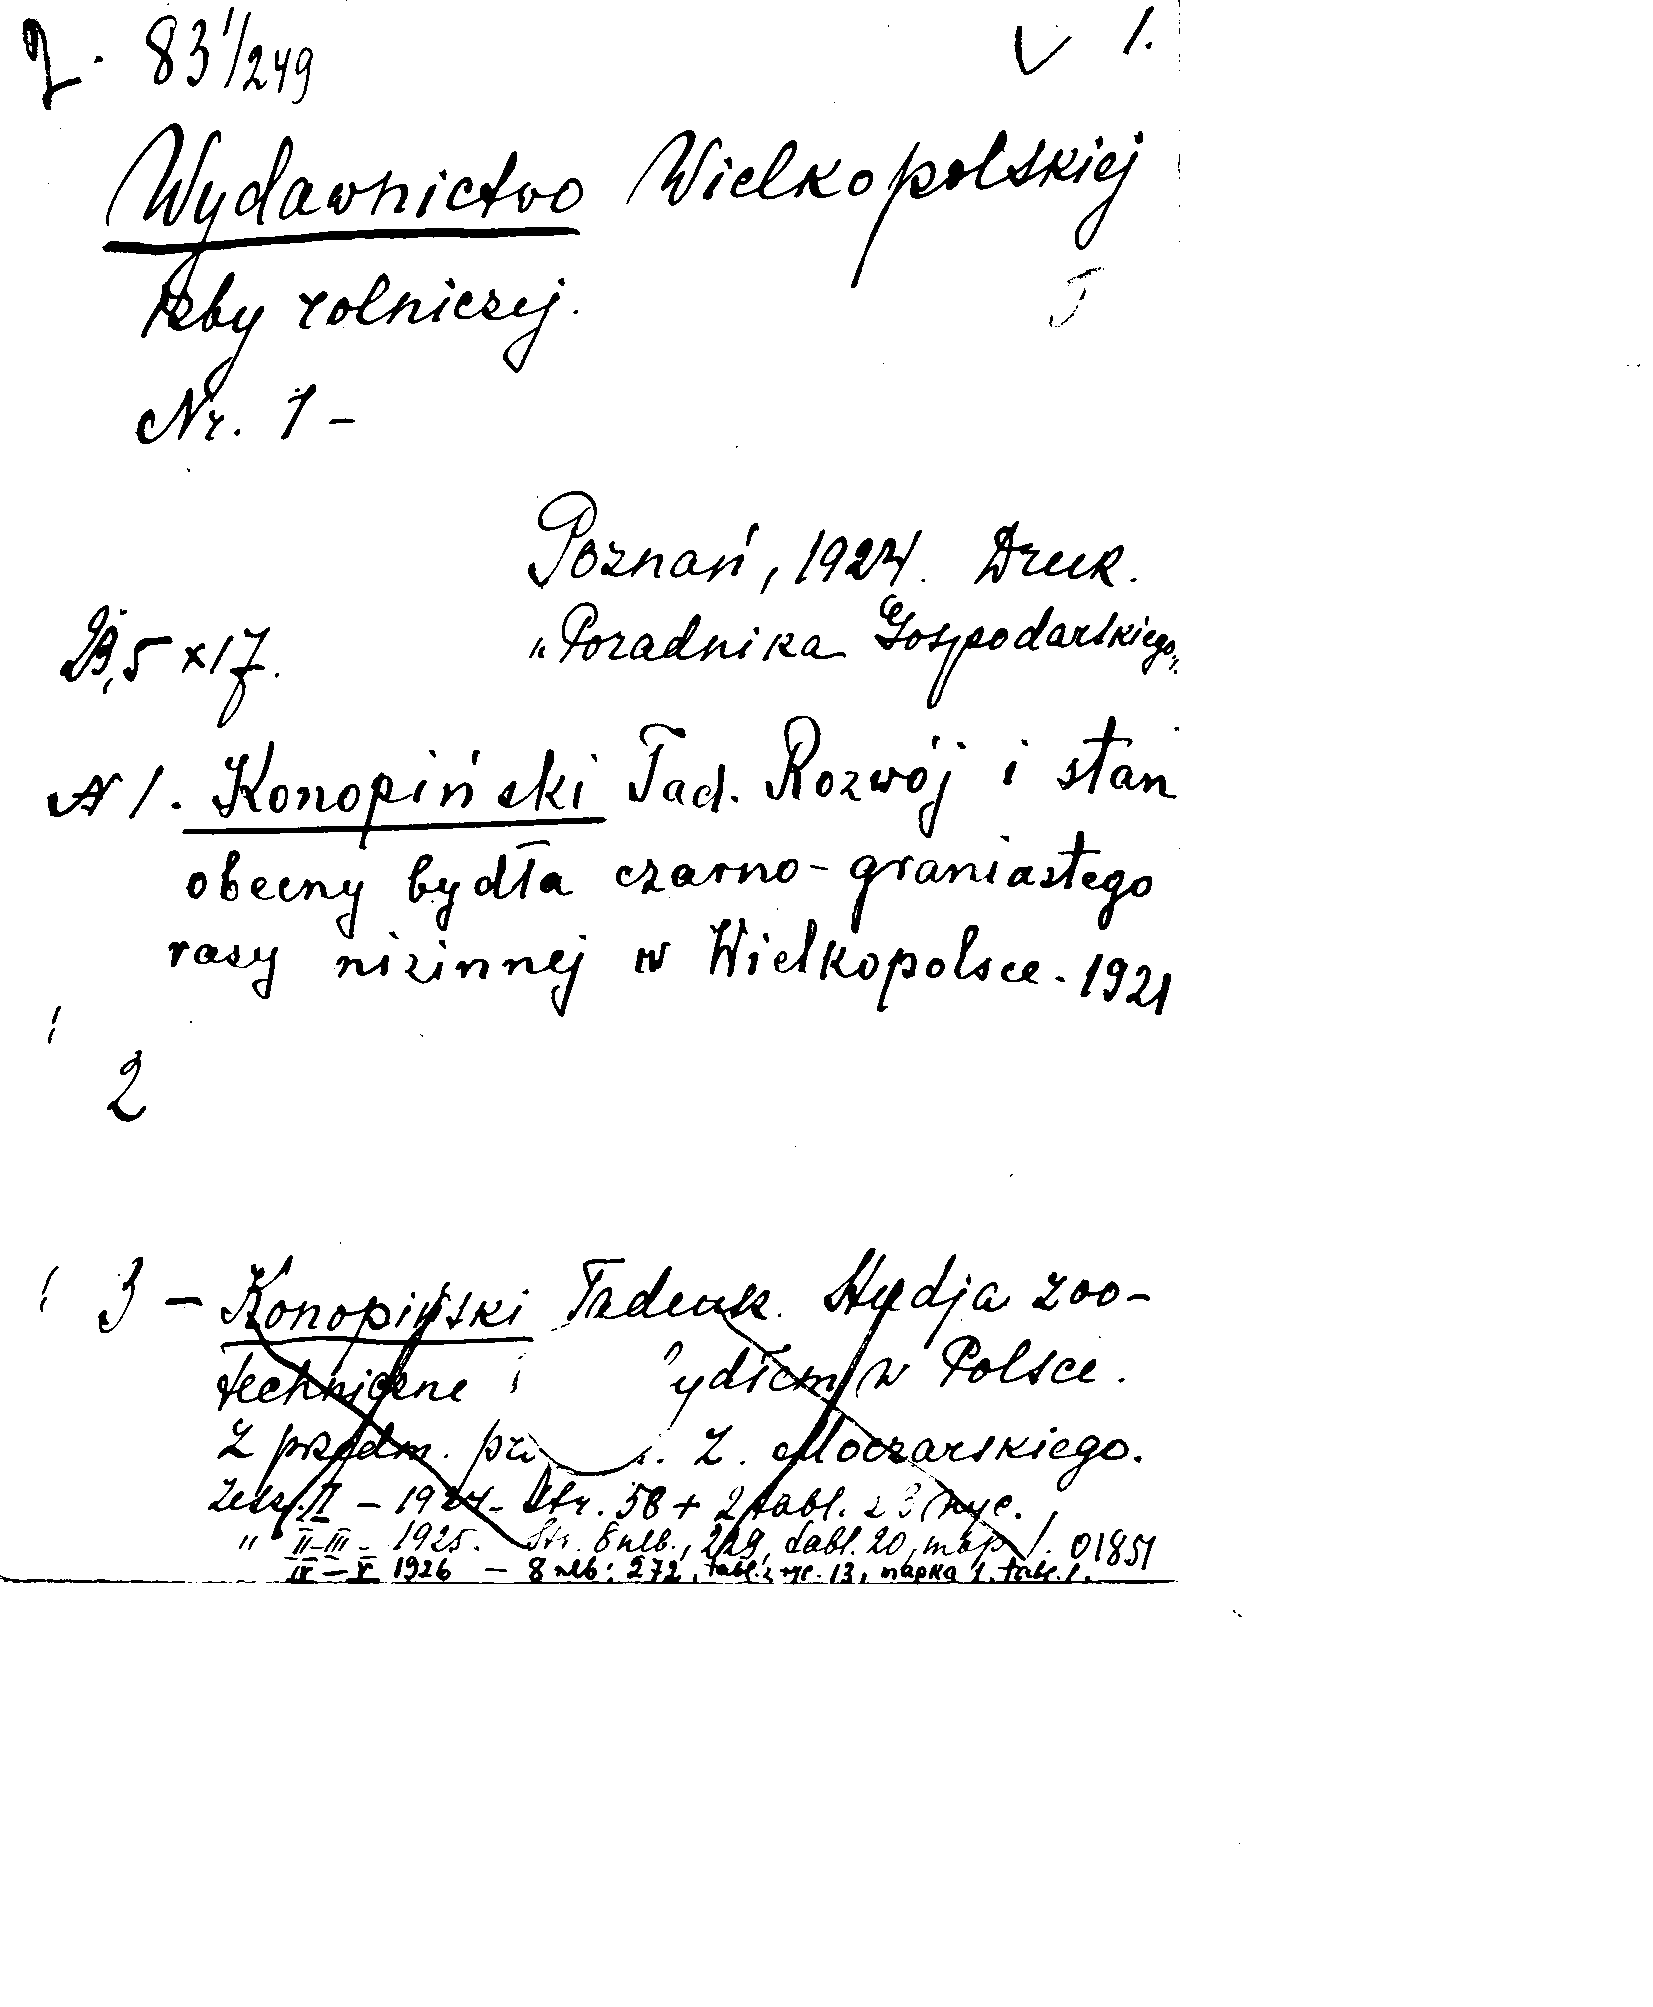 83 1/249 1.
Wydawnictwo Wielkopolskiej
Izby rolniczej.
Nr. 1 -
Poznań, 1924. Druk.
,5 x 17. „Poradnika Gospodarskiego„
N 1. Konopiński Tad. Rozwój i stan
obecny bydła czarno-graniastego
rasy nizinnej w Wielkopolsce. 1921
2
3 - Konopiński Tadeusz. Studja zoo-
techniczne ydłem w Polsce.
Z przedm. Z. Moczarskiego.
Zesz. I - 1924 - Str. 58 + 2 tabl. z 3 ryc.
„ II-III - 1925. Str. 8 nlb., 229, tabl. 20, map 1. 01851
IV-V 1926 - 8 nlb. 272, tabl. z ryc. 13, mapka 1. tabl. 1.